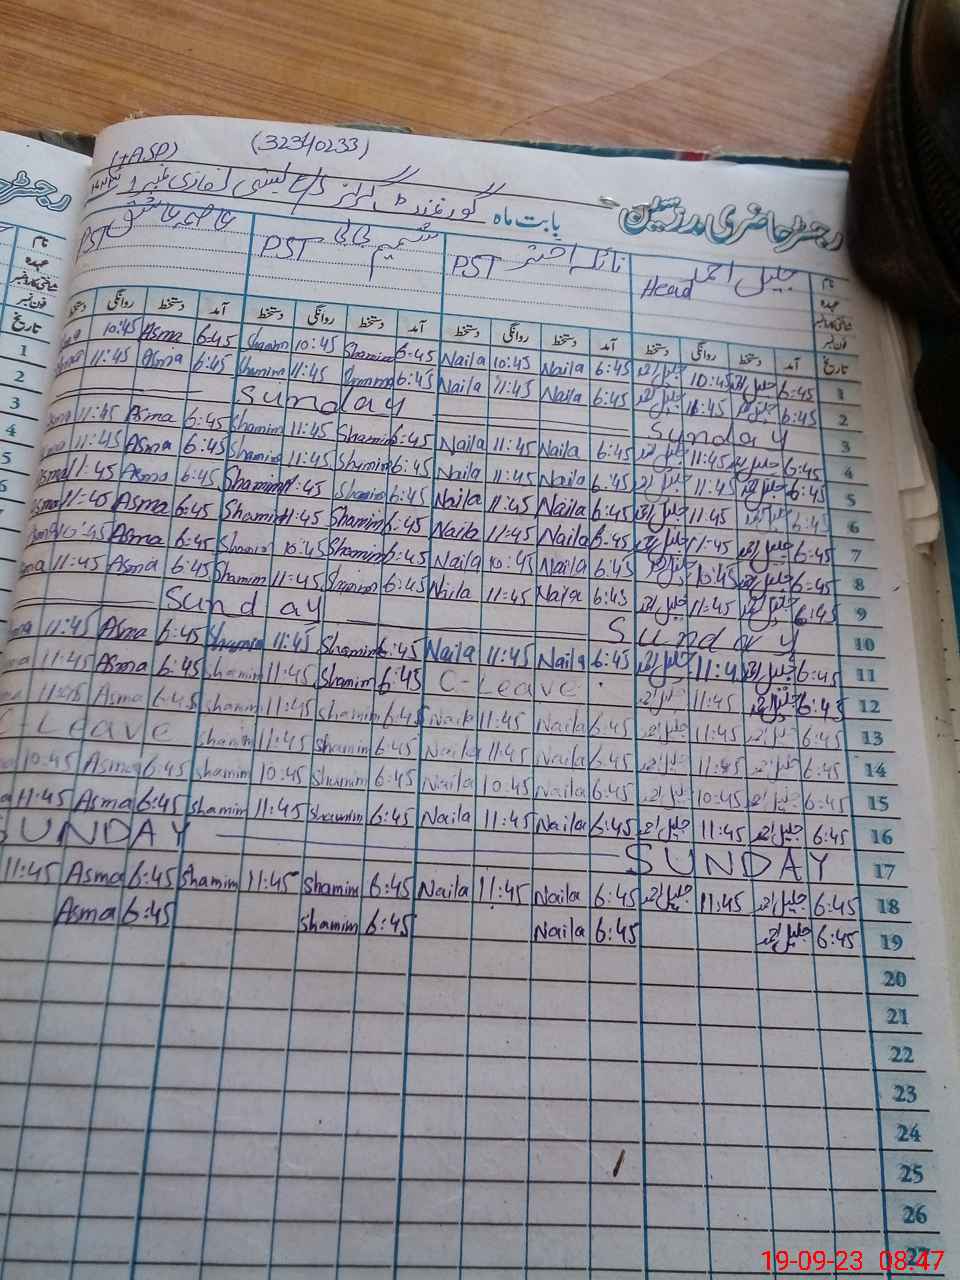 (+ASP) (32340233)
رجسٹر حاضری مدرسین بابت ماہ گورنمنٹ گرلز
نام جلیل احمد نائلہ اختر شمیم بی بی
عہدہ Head PST PST PST
تاریخ آمد دستخط روانگی دستخط آمد دستخط روانگی دستخط آمد دستخط روانگی دستخط آمد دستخط روانگی
1 6:45 جلیل احمد 10:45 جلیل احمد 6:45 Naila 10:45 Naila 6:45 Shamim 10:45 Shamim 6:45 Asma 10:45
2 6:45 جلیل احمد 11:45 جلیل احمد 6:45 Naila 11:45 Naila 6:45 11:45 Shamim 6:45 Asma 11:45
3 Sunday Sunday
4 6:45 جلیل احمد 11:45 جلیل احمد 6:45 Naila 11:45 Naila 6:45 Shamim 11:45 Shamim 6:45 Asma 11:45
5 6:45 جلیل احمد 11:45 جلیل احمد 6:45 Naila 11:45 Naila 6:45 Shamim 11:45 Shamim 6:45 Asma 11:45
6 6:45 جلیل احمد 11:45 جلیل احمد 6:45 Naila 11:45 Naila 6:45 Shamim 11:45 Shamim 6:45 Asma 11:45
7 6:45 جلیل احمد 11:45 جلیل احمد 6:45 Naila 11:45 Naila 6:45 Shamim 11:45 Shamim 6:45 Asma 11:45
8 6:45 جلیل احمد 10:45 جلیل احمد 6:45 Naila 10:45 Naila 6:45 Shamim 10:45 Shamim 6:45 Asma 10:45
9 6:45 جلیل احمد 11:45 جلیل احمد 6:45 Naila 11:45 Naila 6:45 Shamim 11:45 Shamim 6:45 Asma 11:45
10 Sunday Sunday
11 6:45 جلیل احمد 11:45 جلیل احمد 6:45 Naila 11:45 Naila 6:45 Shamim 11:45 Shamim 6:45 Asma 11:45
12 6:45 جلیل احمد 11:45 جلیل احمد C-Leave 6:45 Shamim 11:45 Shamim 6:45 Asma 11:45
13 6:45 جلیل احمد 11:45 جلیل احمد 6:45 Naila 11:45 Naila 6:45 Shamim 11:45 Shamim 6:45 Asma 11:45
14 6:45 جلیل احمد 11:45 جلیل احمد 6:45 Naila 11:45 Naila 6:45 Shamim 11:45 Shamim C-Leave
15 6:45 جلیل احمد 10:45 جلیل احمد 6:45 Naila 10:45 Naila 6:45 Shamim 10:45 Shamim 6:45 Asma 10:45
16 6:45 جلیل احمد 11:45 جلیل احمد 6:45 Naila 11:45 Naila 6:45 Shamim 11:45 Shamim 6:45 Asma 11:45
17 SUNDAY SUNDAY
18 6:45 جلیل احمد 11:45 جلیل احمد 6:45 Naila 11:45 Naila 6:45 Shamim 11:45 Shamim 6:45 Asma 11:45
19 6:45 جلیل احمد 6:45 Naila 6:45 Shamim 6:45 Asma
20
21
22
23
24
25
26
27
19-09-23 08:47